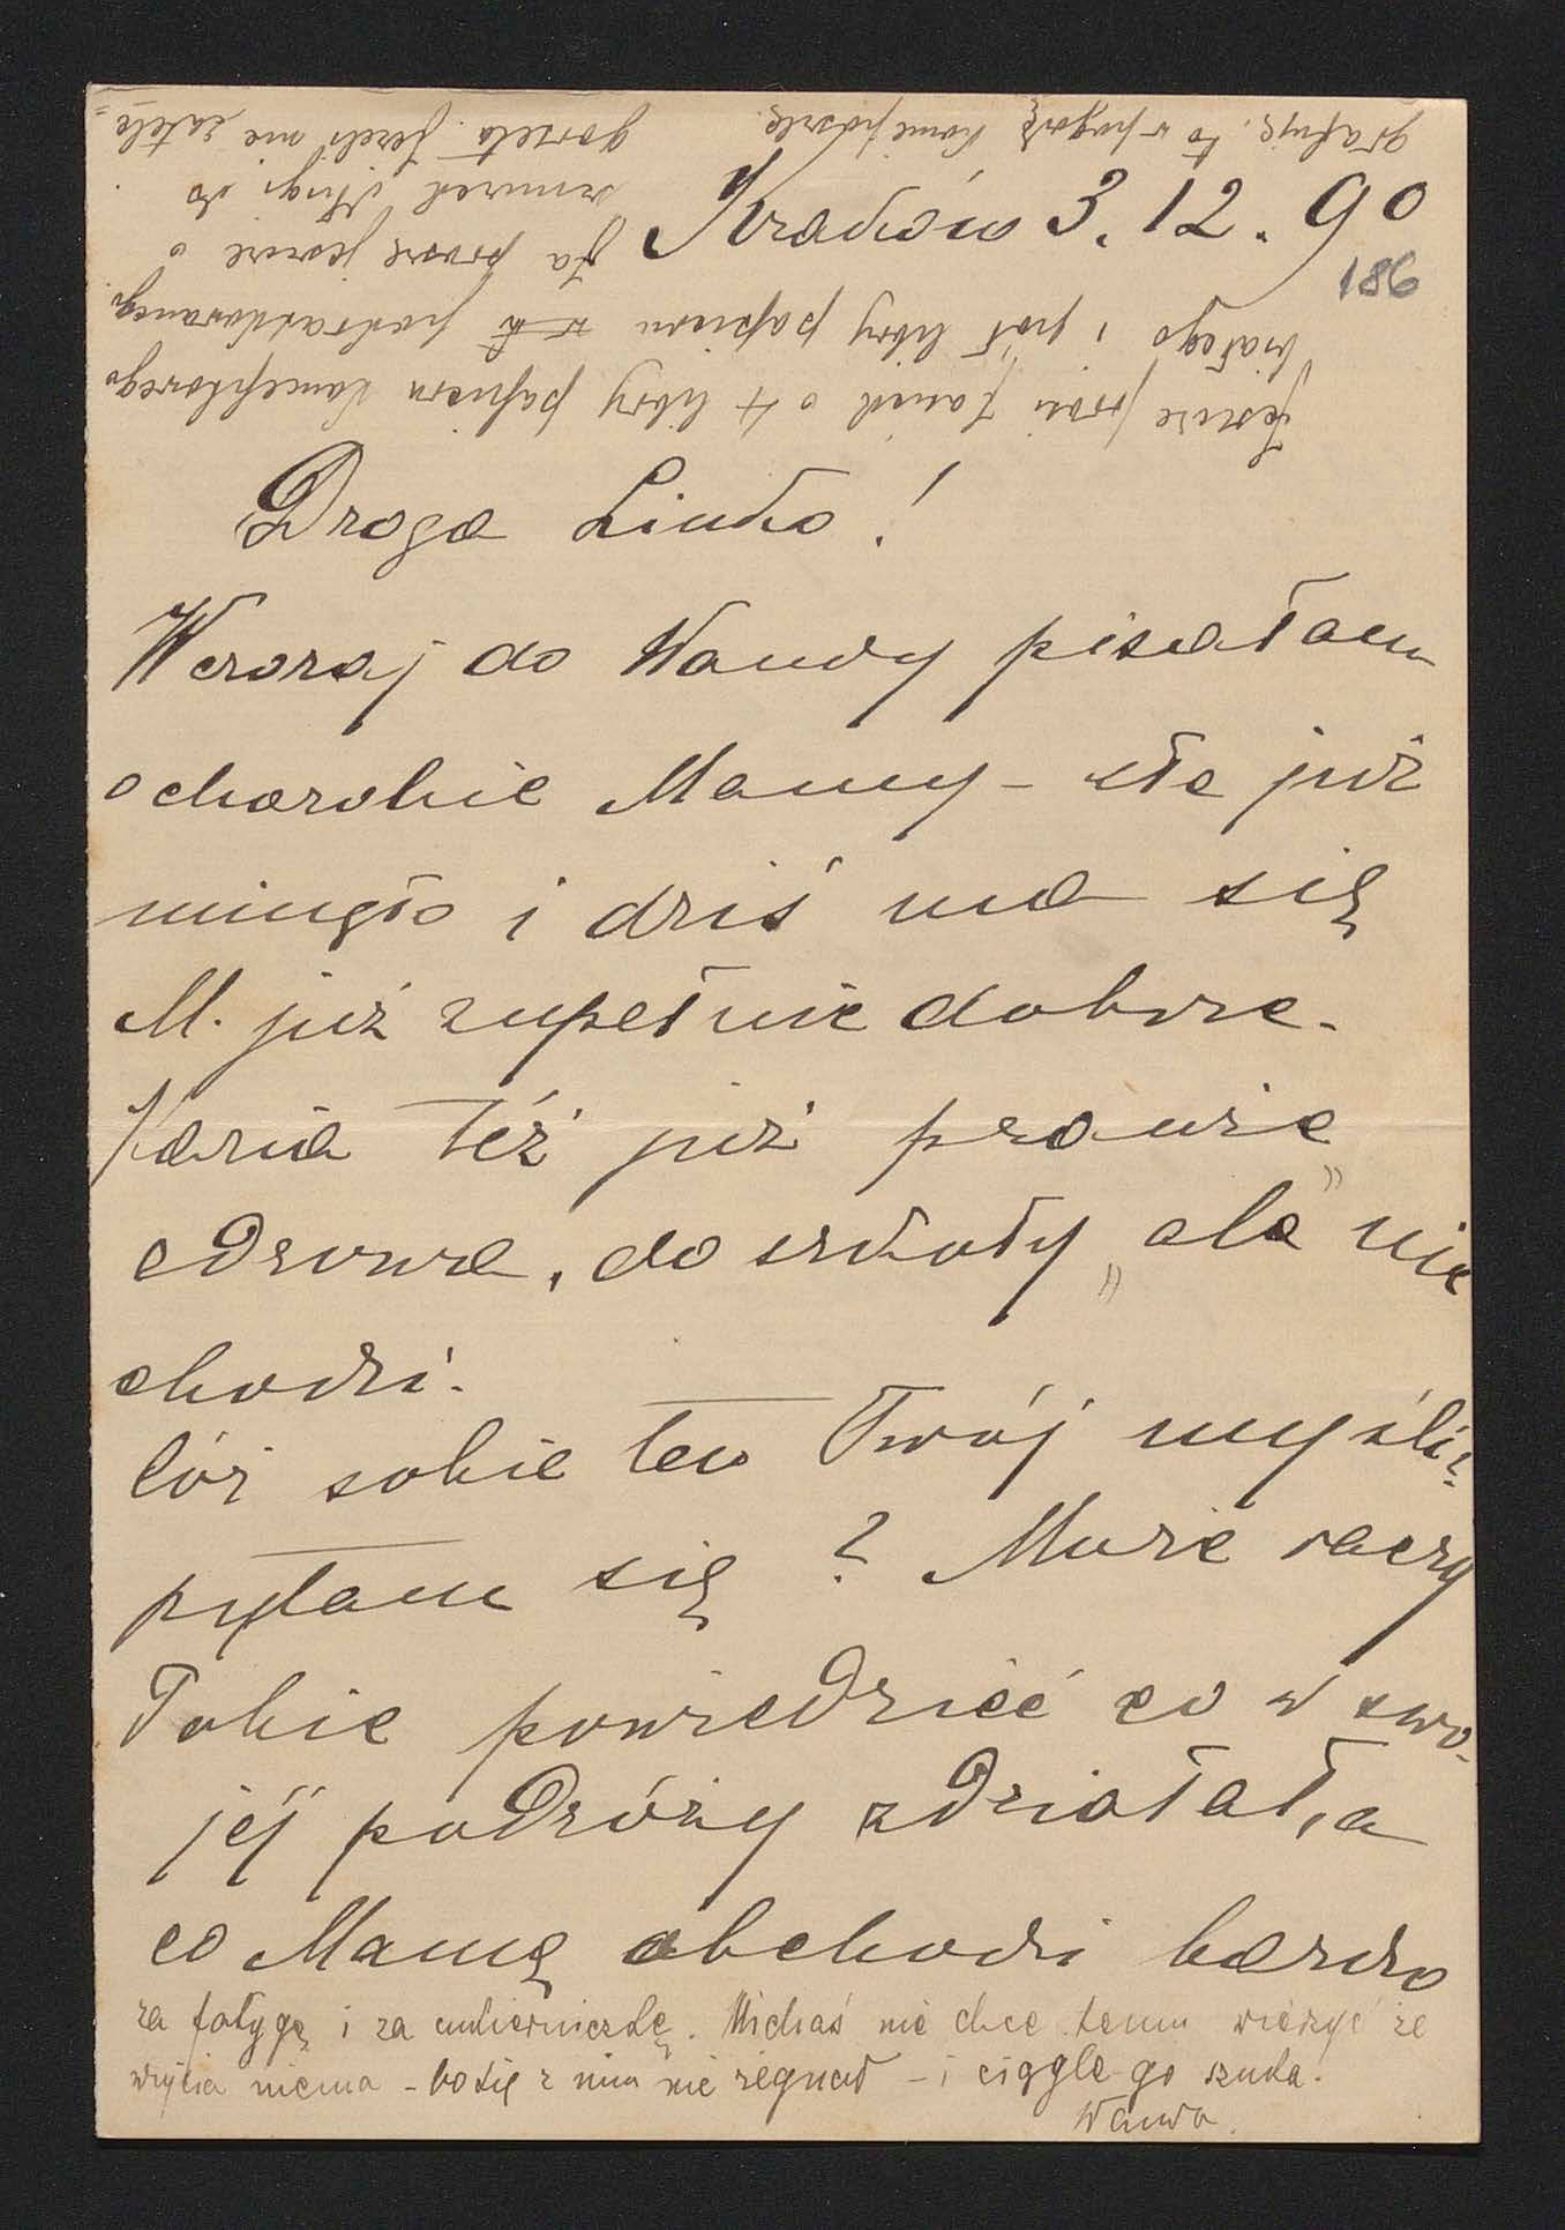 Kraków 3. 12. 90
186
Droga Linko!
Wczoraj do Wandy pisałam
o chorobie Mamy - ale już
minęło i dziś ma się
M. już zupełnie dobrze.
też już prawie
zdrowa, do szkoły „ale" nie
chodzi.
Cóż sobie ten Twój myśli?
pytam się? Może raczy
Tobie powiedzieć co w swo-
jéj podróży zdziałał, a
co Mamę obchodzi bardzo
za fatygę i za cukierniczkę. Michaś nie chce temu wierzyć że
wujcia niema - bo się z nim nie żegnał - i ciągle go szuka.
Wanda
Jeszcze prosi Janek o 4 libry papieru konceptowego
białego i pół libry papieru pokratkowanego
Ja proszę jeszcze o
sznurek długi do
gorseta. Jeżeli nie zatele=
grafuję, to w piątek konie poszlę.